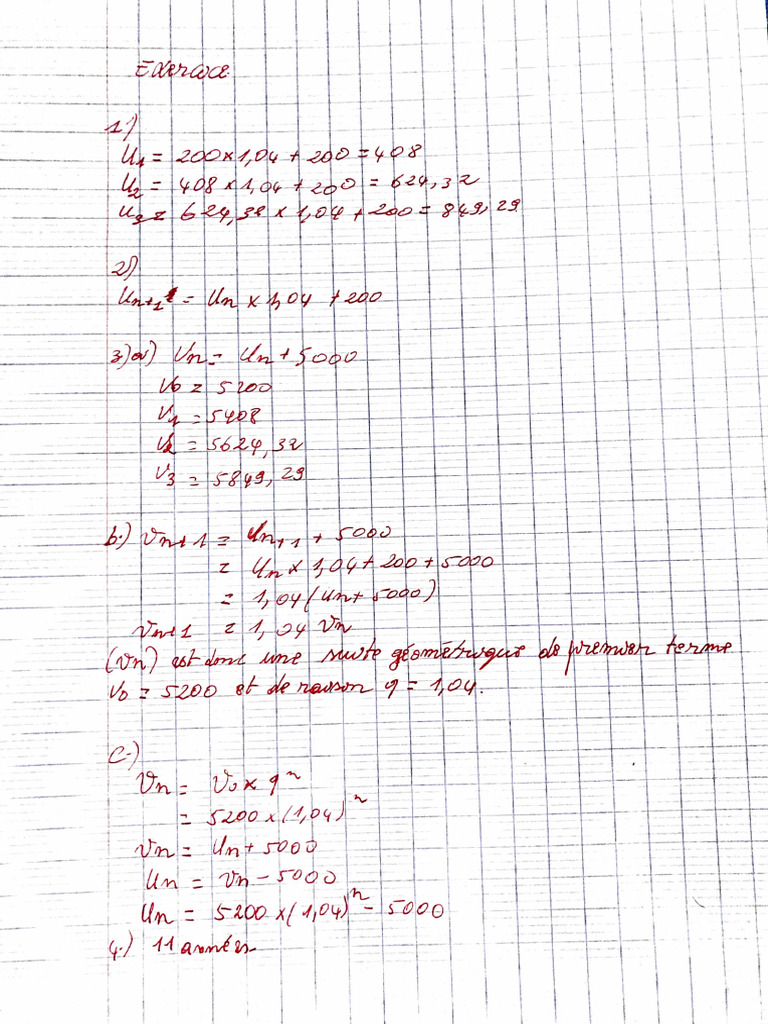 Exercice
1)
U1 = 200 × 1,04 + 200 = 408
U2 = 408 × 1,04 + 200 = 624,32
U3 = 624,32 × 1,04 + 200 = 849,29
2)
Un+1 = Un × 1,04 + 200
3)a) Vn = Un + 5000
V0 = 5200
V1 = 5408
V2 = 5624,32
V3 = 5849,29
b.) Vn+1 = Un+1 + 5000
= Un × 1,04 + 200 + 5000
= 1,04 (Un + 5000)
Vn+1 = 1,04 Vn
(Vn) est donc une suite géométrique de premier terme
V0 = 5200 et de raison q = 1,04.
c.)
Vn = V0 × qⁿ
= 5200 × (1,04)ⁿ
Vn = Un + 5000
Un = Vn - 5000
Un = 5200 × (1,04)ⁿ - 5000
4.) 11 années